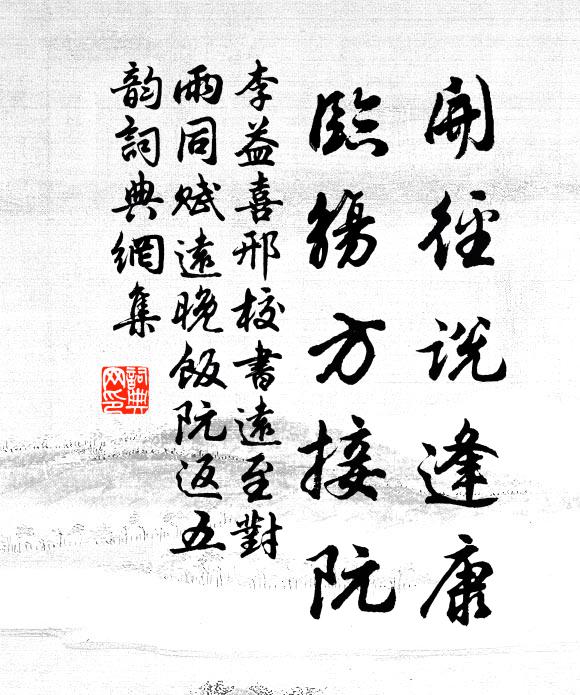 開徑說逢康
臨觴方接阮
李益喜邢校書遠至對
雨同賦遠晚飯阮返五
韵詞典網集
詞典网印